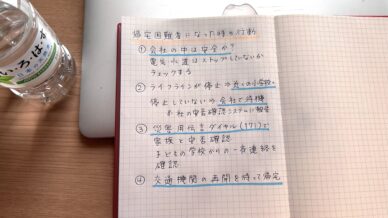 帰宅困難者になった時の行動
① 会社の中は安全か?
電気水道はストップしていないか
チェックする
② ライフラインが停止⇒近くの小学校へ
停止していない⇒会社で待機
※社の安否確認システムに報告
③ 災害用伝言ダイヤル(171)で
家族と安否確認
子どもの学校からの一斉連絡を
確認
④ 交通機関の再開を待って帰宅
いろはす